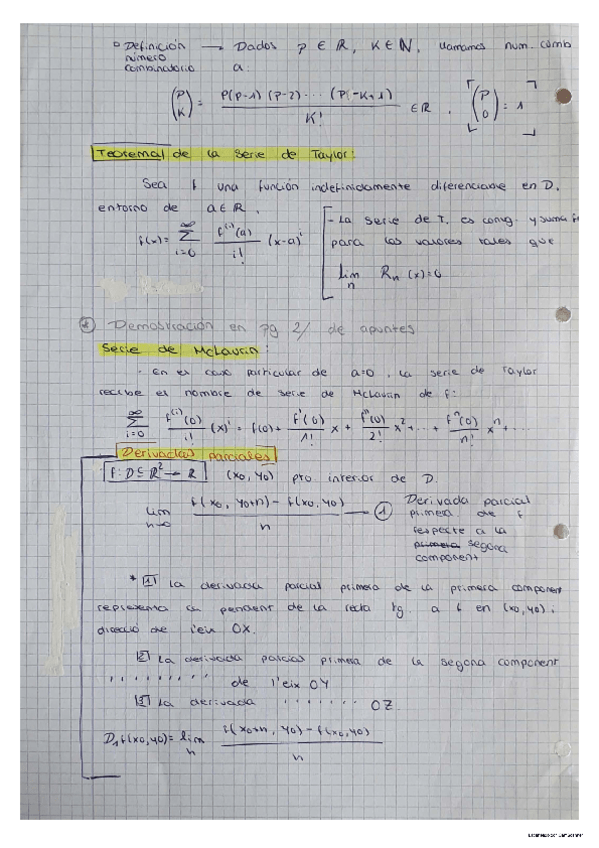 ◦ Definición → Dados p ∈ ℝ, K ∈ ℕ, llamamos num. comb
número
combinatorio a:
(P K) = P(P-1)(P-2)···(P-K+1) / K! ∈ ℝ, ⌈(P 0) = 1⌋
Teorema de la serie de Taylor:
Sea f una función indefinidamente diferenciable en D,
entorno de a ∈ ℝ,
f(x) = ∑_{i=0}^{∞} f^{(i)}(a) / i! (x-a)^i
- La serie de T. es conv. y suma f
para los valores tales que
lim_n R_n(x) = 0
* Demostración en pg 2/ de apuntes
Serie de McLaurin:
· En el caso particular de a=0, la serie de Taylor
recibe el nombre de serie de McLaurin de f:
∑_{i=0}^{∞} f^{(i)}(0) / i! (x)^i = f(0) + f'(0)/1! x + f''(0)/2! x² + ··· + f^n(0)/n! x^n + ···
Derivadas parciales
f: D ⊆ ℝ² → ℝ (x0, y0) pto interior de D.
lim_{h→0} f(x0, y0+h) - f(x0, y0) / h → ①
Derivada parcial
primera de f
respecte a la
primera segona
component
* 1 La derivada parcial primera de la primera component
representa la pendent de la recta tg. a f en (x0, y0) i
direcció de l'eix OX.
2 La derivada parcial primera de la segona component
········· de l'eix OY
3 La derivada ······· OZ.
D₁f(x0, y0) = lim_h f(x0+h, y0) - f(x0, y0) / h